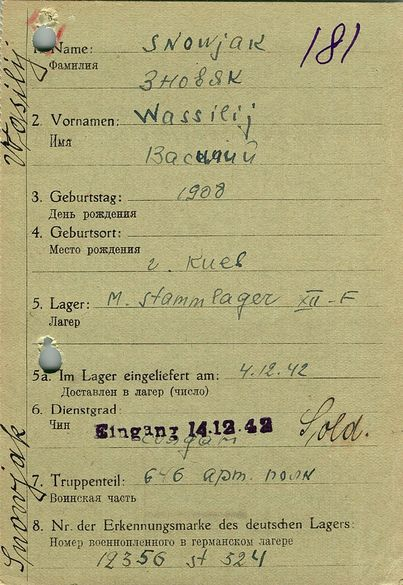 181
1. Name: SNOWJAK
Фамилия
ЗНОВЯК
2. Vornamen: Wassilij
Имя
Василий
3. Geburtstag: 1908
День рождения
4. Geburtsort:
Место рождения
г. Киев
5. Lager: M. Stammlager XII-F
Лагер
5a. Im Lager eingeliefert am: 4.12.42
Доставлен в лагер (число)
6. Dienstgrad:
Чин
Eingang 14.12.42 Sold.
7. Truppenteil: 646 арт. полк
Воинская часть
8. Nr. der Erkennungsmarke des deutschen Lagers:
Номер военнопленного в германском лагере
12356 st 324
Snowjak Wasilij